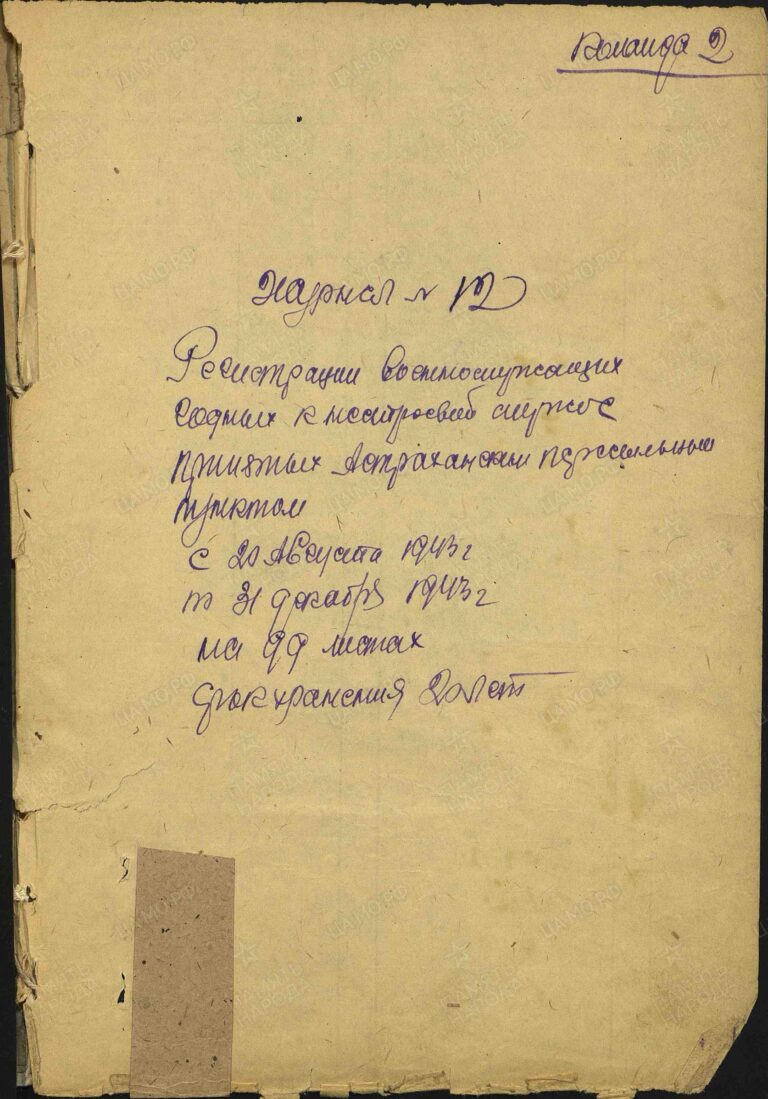 Команда 2
Журнал N 12
Регистрации военнослужащих
годных к нестроевой службе
принятых Астраханским пересыльным
пунктом
с 20 Августа 1943 г
по 31 декабря 1943 г
на 99 листах
срок хранения 20 лет
ЦАМО.РФ
ПАМЯТЬ НАРОДА